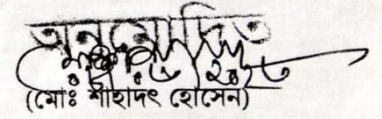 অনুমোদিত
(মোঃ শাহাদৎ হোসেন)